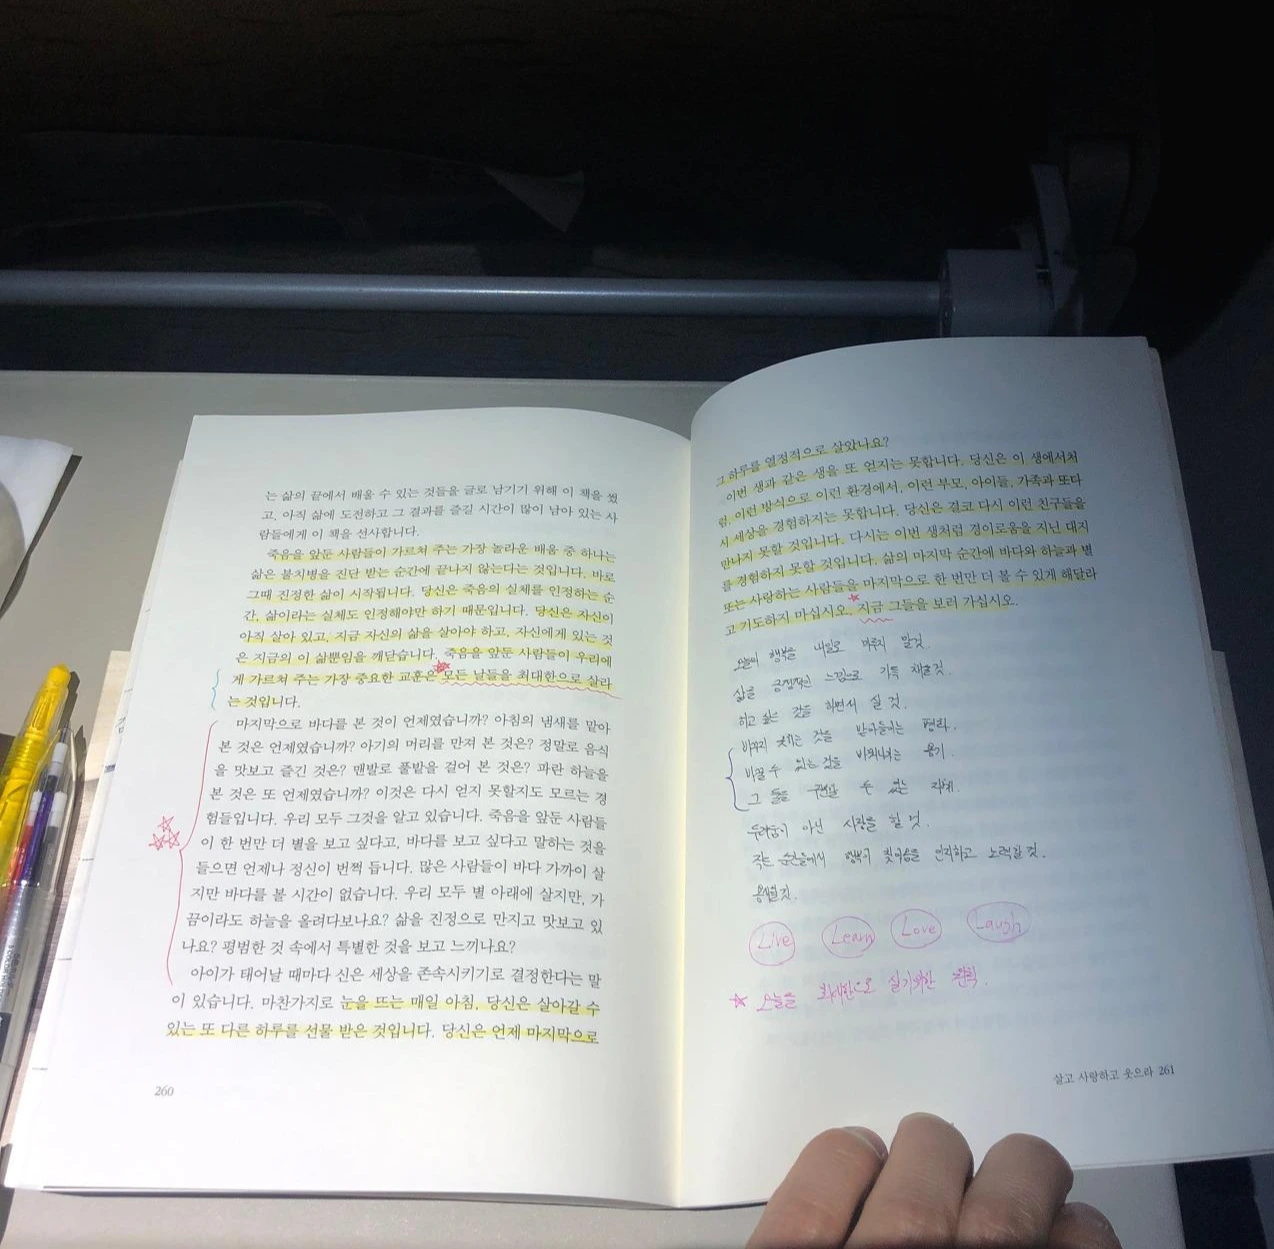 는 삶의 끝에서 배울 수 있는 것들을 글로 남기기 위해 이 책을 썼
고, 아직 삶에 도전하고 그 결과를 즐길 시간이 많이 남아 있는 사
람들에게 이 책을 선사합니다.
죽음을 앞둔 사람들이 가르쳐 주는 가장 놀라운 배움 중 하나는
삶은 불치병을 진단 받는 순간에 끝나지 않는다는 것입니다. 바로
그때 진정한 삶이 시작됩니다. 당신은 죽음의 실체를 인정하는 순
간, 삶이라는 실체도 인정해야만 하기 때문입니다. 당신은 자신이
아직 살아 있고, 지금 자신의 삶을 살아야 하고, 자신에게 있는 것
은 지금의 이 삶뿐임을 깨닫습니다. 죽음을 앞둔 사람들이 우리에
게 가르쳐 주는 가장 중요한 교훈은 모든 날들을 최대한으로 살라
는 것입니다.
마지막으로 바다를 본 것이 언제였습니까? 아침의 냄새를 맡아
본 것은 언제였습니까? 아기의 머리를 만져 본 것은? 정말로 음식
을 맛보고 즐긴 것은? 맨발로 풀밭을 걸어 본 것은? 파란 하늘을
본 것은 또 언제였습니까? 이것은 다시 얻지 못할지도 모르는 경
험들입니다. 우리 모두 그것을 알고 있습니다. 죽음을 앞둔 사람들
이 한 번만 더 별을 보고 싶다고, 바다를 보고 싶다고 말하는 것을
들으면 언제나 정신이 번쩍 듭니다. 많은 사람들이 바다 가까이 살
지만 바다를 볼 시간이 없습니다. 우리 모두 별 아래에 살지만, 가
끔이라도 하늘을 올려다보나요? 삶을 진정으로 만지고 맛보고 있
나요? 평범한 것 속에서 특별한 것을 보고 느끼나요?
아이가 태어날 때마다 신은 세상을 존속시키기로 결정한다는 말
이 있습니다. 마찬가지로 눈을 뜨는 매일 아침, 당신은 살아갈 수
있는 또 다른 하루를 선물 받은 것입니다. 당신은 언제 마지막으로
260
그 하루를 열정적으로 살았나요?
이번 생과 같은 생을 또 얻지는 못합니다. 당신은 이 생에서처
럼, 이런 방식으로 이런 환경에서, 이런 부모, 아이들, 가족과 또다
시 세상을 경험하지는 못합니다. 당신은 결코 다시 이런 친구들을
만나지 못할 것입니다. 다시는 이번 생처럼 경이로움을 지닌 대지
를 경험하지 못할 것입니다. 삶의 마지막 순간에 바다와 하늘과 별
또는 사랑하는 사람들을 마지막으로 한 번만 더 볼 수 있게 해달라
고 기도하지 마십시오. 지금 그들을 보러 가십시오.
오늘의 행복을 내일로 미루지 말 것.
삶을 긍정적인 느낌으로 가득 채울 것.
하고 싶은 것을 하면서 살 것.
바꾸지 못하는 것을 받아들이는 평화.
바꿀 수 있는 것을 바꿔내는 용기.
그 둘을 구별할 수 있는 지혜.
두려움이 아닌 사랑을 할 것.
작은 순간들에서 행복이 찾아옴을 인지하고 노력할 것.
용서할 것.
Live Learn Love Laugh
오늘을 최대한으로 살기위한 원칙.
살고 사랑하고 웃으라 261